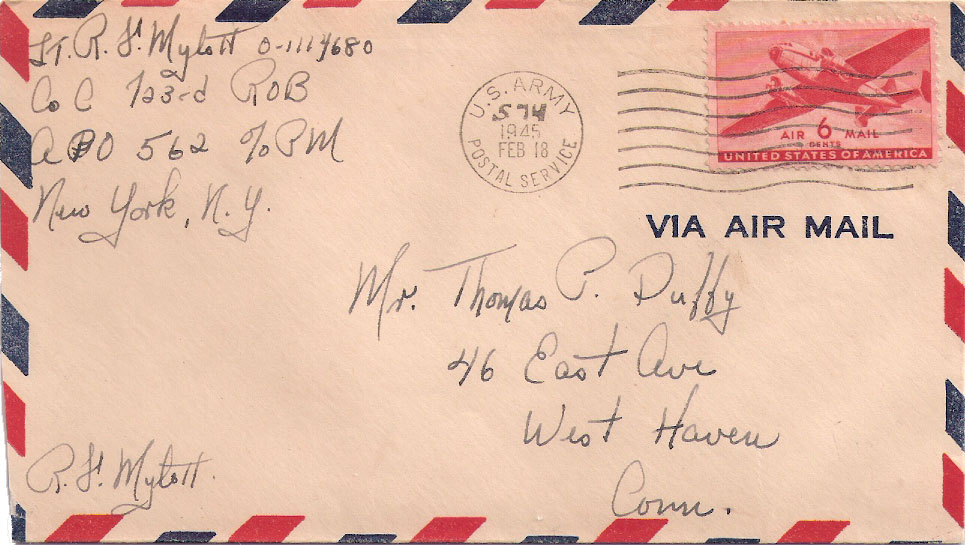 Lt. R. H. Mylott O-1114680
Co C 123rd ROB
APO 562 c/o PM
New York, N.Y.
U.S. ARMY
1945
FEB 18
POSTAL SERVICE
AIR 6 MAIL
CENTS
UNITED STATES OF AMERICA
VIA AIR MAIL
Mr. Thomas P. Duffy
46 East Ave
West Haven
Conn.
R. H. Mylott.